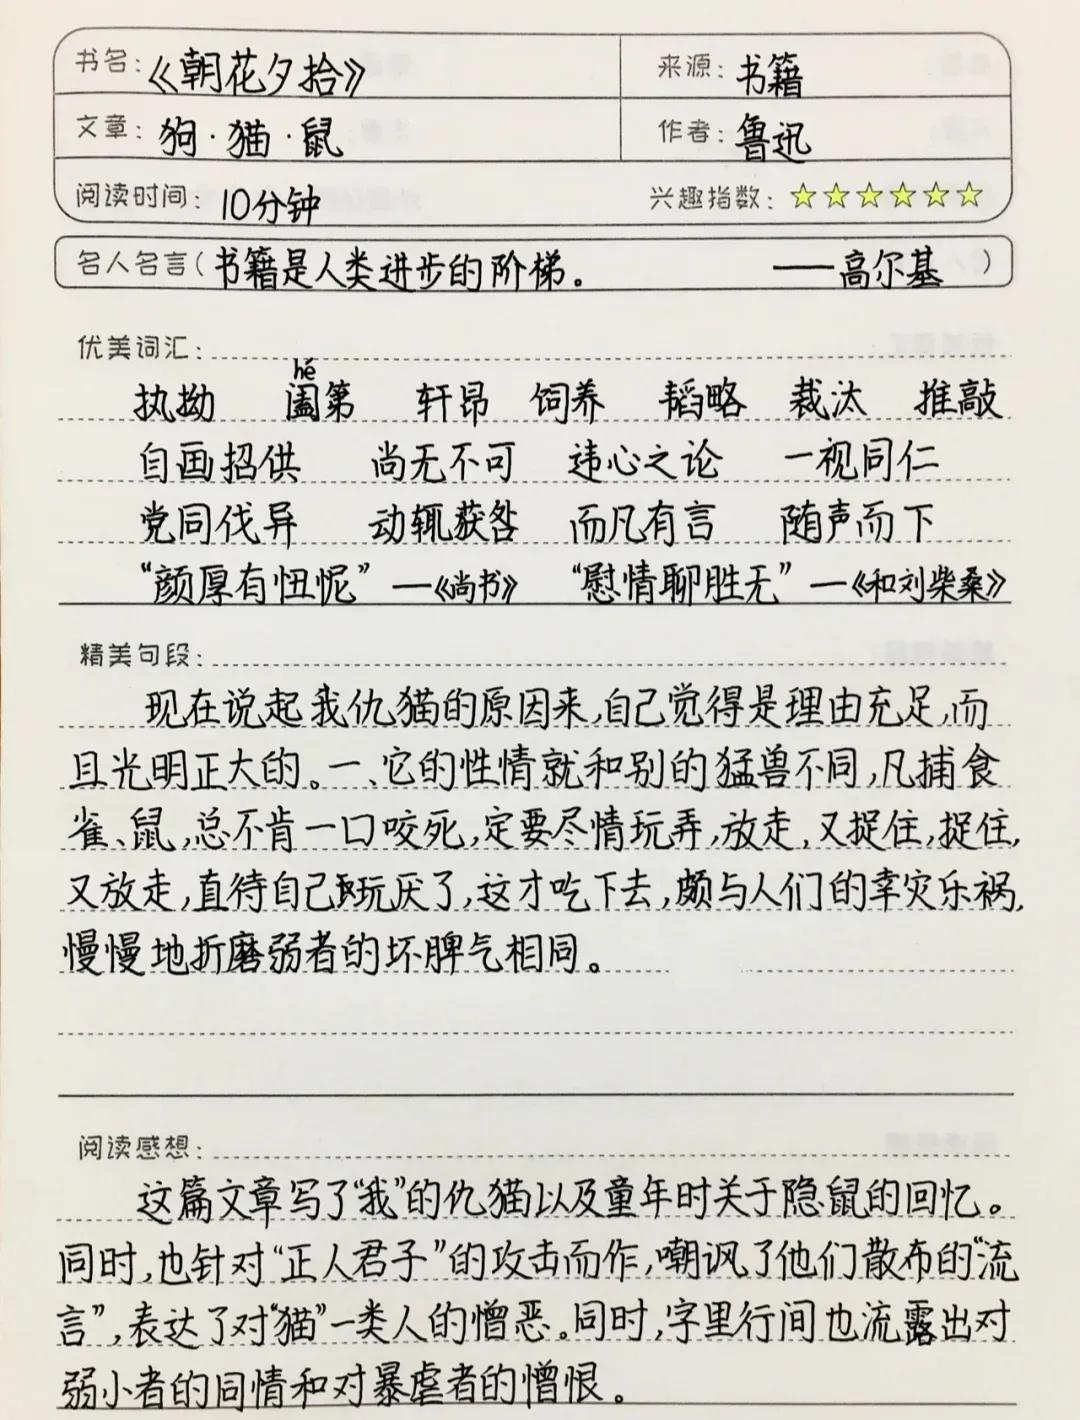 书名:《朝花夕拾》 来源:书籍
文章:狗·猫·鼠 作者:鲁迅
阅读时间:10分钟 兴趣指数:☆☆☆☆☆☆
名人名言(书籍是人类进步的阶梯。 ——高尔基 )
优美词汇:
hé
执拗 阖第 轩昂 饲养 韬略 裁汰 推敲
自画招供 尚无不可 违心之论 一视同仁
党同伐异 动辄获咎 而凡有言 随声而下
“颜厚有忸怩”—《尚书》 “慰情聊胜无”—《和刘柴桑》
精美句段:
现在说起我仇猫的原因来,自己觉得是理由充足,而
且光明正大的。一、它的性情就和别的猛兽不同,凡捕食
雀、鼠,总不肯一口咬死,定要尽情玩弄,放走,又捉住,捉住,
又放走,直待自己玩厌了,这才吃下去,颇与人们的幸灾乐祸,
慢慢地折磨弱者的坏脾气相同。
阅读感想:
这篇文章写了“我”的仇猫以及童年时关于隐鼠的回忆。
同时,也针对“正人君子”的攻击而作,嘲讽了他们散布的“流
言”,表达了对“猫”一类人的憎恶。同时,字里行间也流露出对
弱小者的同情和对暴虐者的憎恨。